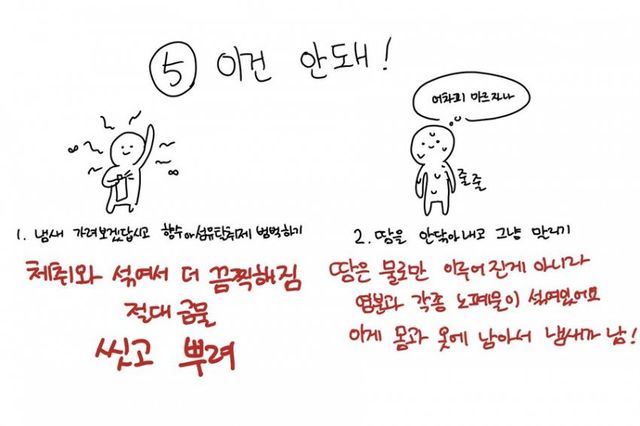 ⑤ 이건 안돼!
어차피 마르잖아
줄줄
1. 냄새 가려보겠답시고 향수나 섬유탈취제 범벅하기
체취와 섞여서 더 끔찍해짐
절대 금물
씻고 뿌려
2. 땀을 안닦아내고 그냥 말리기
땀은 물로만 이루어진게 아니라
염분과 각종 노폐물이 섞여있어요
이게 몸과 옷에 남아서 냄새가 남!